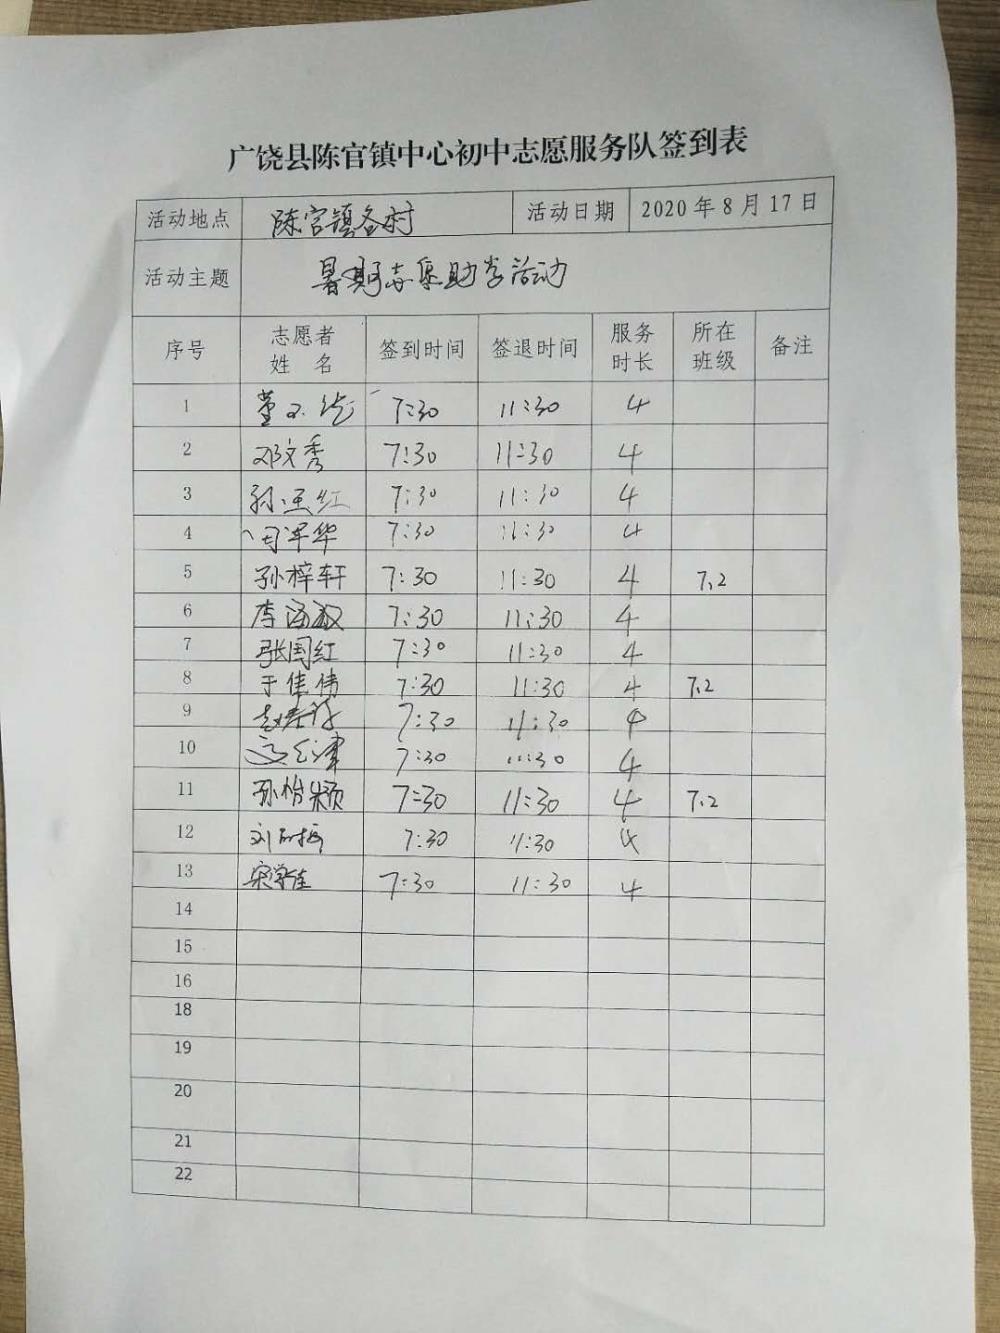 广饶县陈官镇中心初中志愿服务队签到表
活动地点 陈官镇各村 活动日期 2020年8月17日
活动主题 暑期志愿助学活动
序号 志愿者姓名 签到时间 签退时间 服务时长 所在班级 备注
1 7:30 11:30 4
2 邓文秀 7:30 11:30 4
3 7:30 11:30 4
4 7:30 11:30 4
5 孙梓轩 7:30 11:30 4 7.2
6 李海 7:30 11:30 4
7 张国红 7:30 11:30 4
8 于佳伟 7:30 11:30 4 7.2
9 7:30 11:30 4
10 7:30 11:30 4
11 孙怡颖 7:30 11:30 4 7.2
12 刘 7:30 11:30 4
13 7:30 11:30 4
14
15
16
18
19
20
21
22